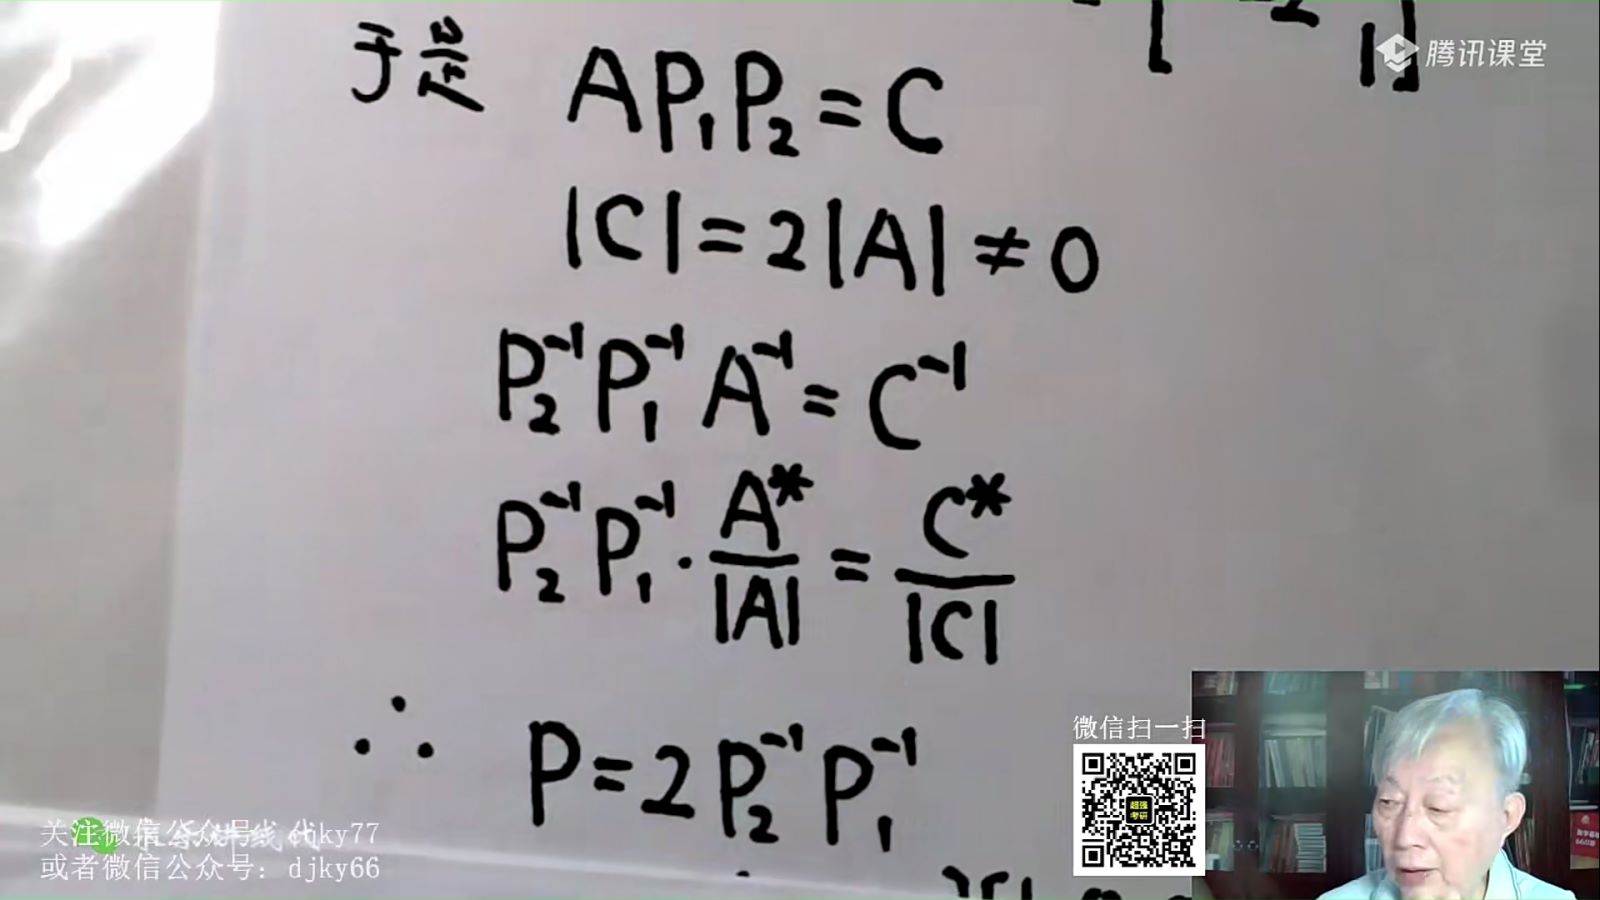 腾讯课堂
于是 AP₁P₂ = C
|C| = 2|A| ≠ 0
P₂⁻¹P₁⁻¹A⁻¹ = C⁻¹
P₂⁻¹P₁⁻¹ · A*/|A| = C*/|C|
∴ P = 2P₂⁻¹P₁⁻¹
微信扫一扫
超强
考研
关注微信公众号:
ky77
或者微信公众号：djky66